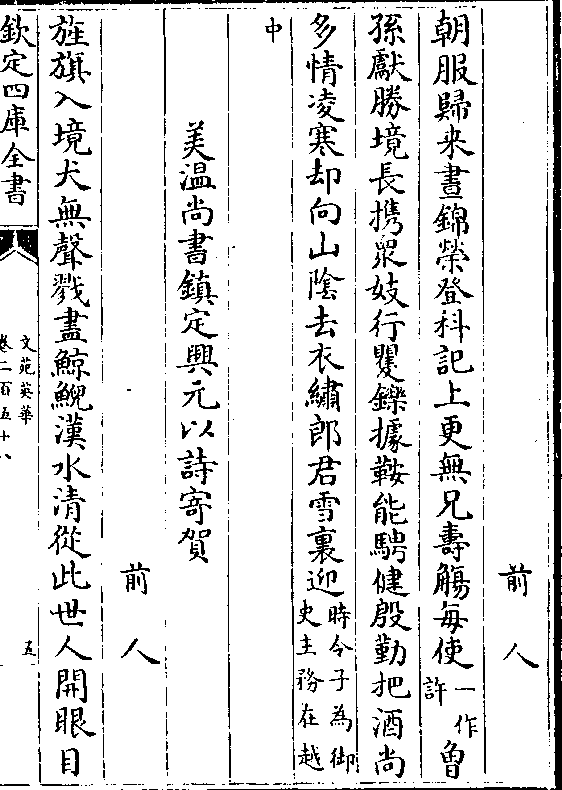 前人
朝服歸来晝錦榮登科記上更無兄壽觴每使一作許曾
孫獻勝境長携衆妓行矍鑠據鞍能騁健殷勤把酒尚
多情凌寒却向山陰去衣繡郎君雪裏迎時令子為御史主務在越
中
美温尚書鎮定興元以詩寄賀
前人
旌旗入境犬無聲戮盡鯨鯢漢水清從此世人開眼目
欽定四庫全書
文苑英華
卷二百五十八
五